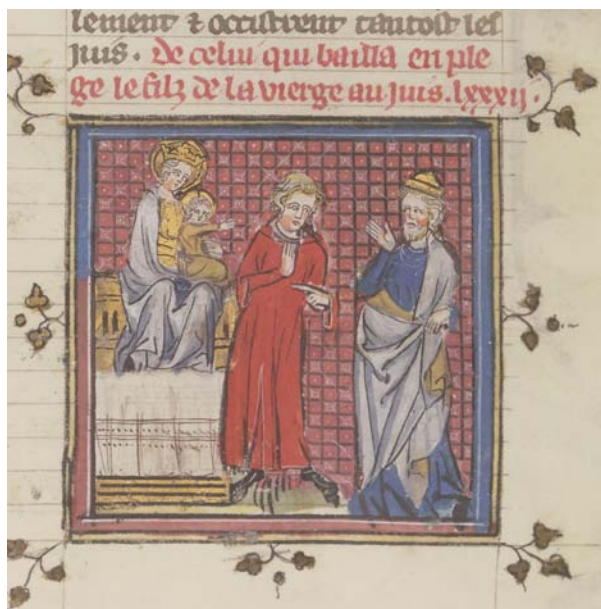 lement ⁊ occistrent tantost les
juis. De celui qui bailla en ple
ge le filz de la vierge au juis. lxxxij.